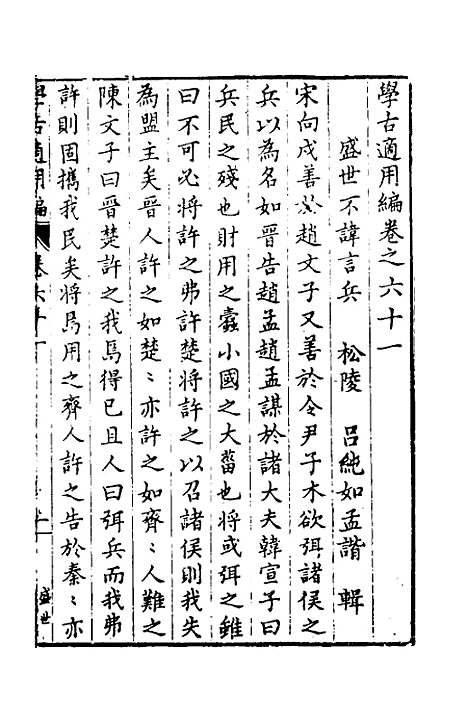 學古適用編卷之六十一
盛世不諱言兵 松陵 呂純如孟諧 輯
宋向戌善於趙文子又善於令尹子木欲弭諸侯之
兵以為名如晉告趙孟趙孟謀於諸大夫韓宣子曰
兵民之殘也財用之蠹小國之大菑也將或弭之雖
曰不可必將許之弗許楚將許之以召諸侯則我失
為盟主矣晉人許之如楚〻亦許之如齊〻人難之
陳文子曰晉楚許之我焉得已且人曰弭兵而我弗
許則固攜我民矣將焉用之齊人許之告於秦〻亦
學古適用編 卷六十一 盛世